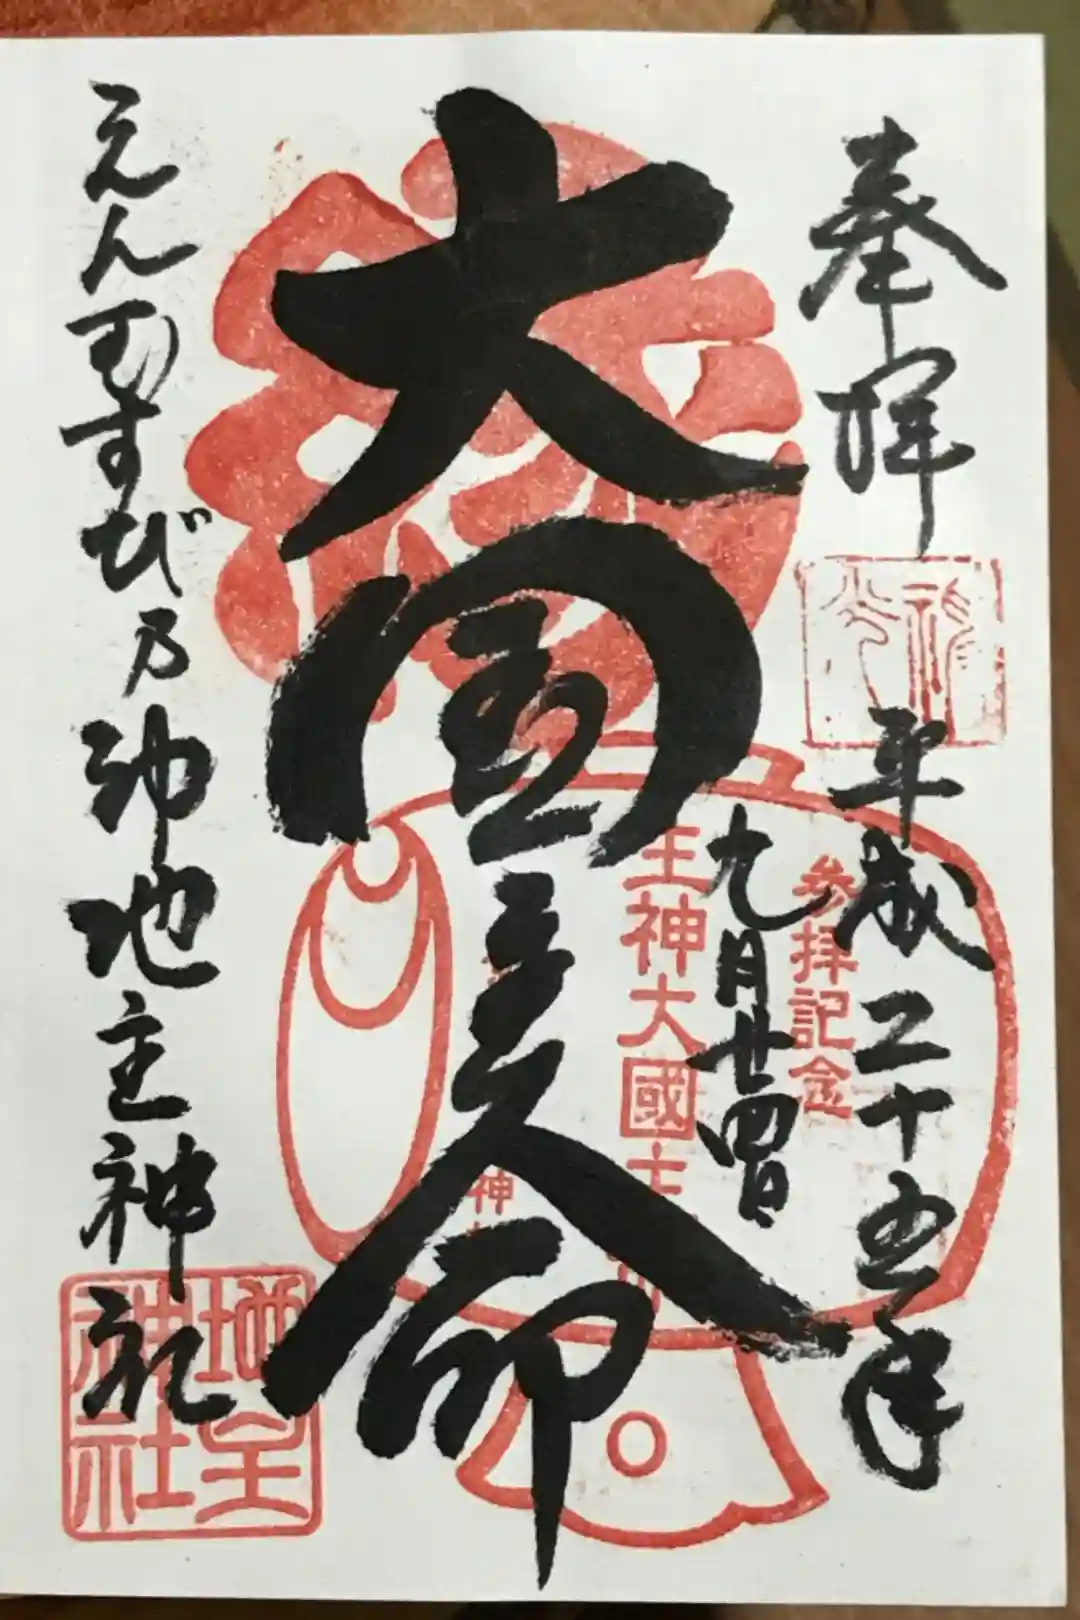 奉拝
平成二十五年
九月廿四日
参拝記念
大国主命
王神大國士
神
えんむすび乃神地主神社
地主
神社